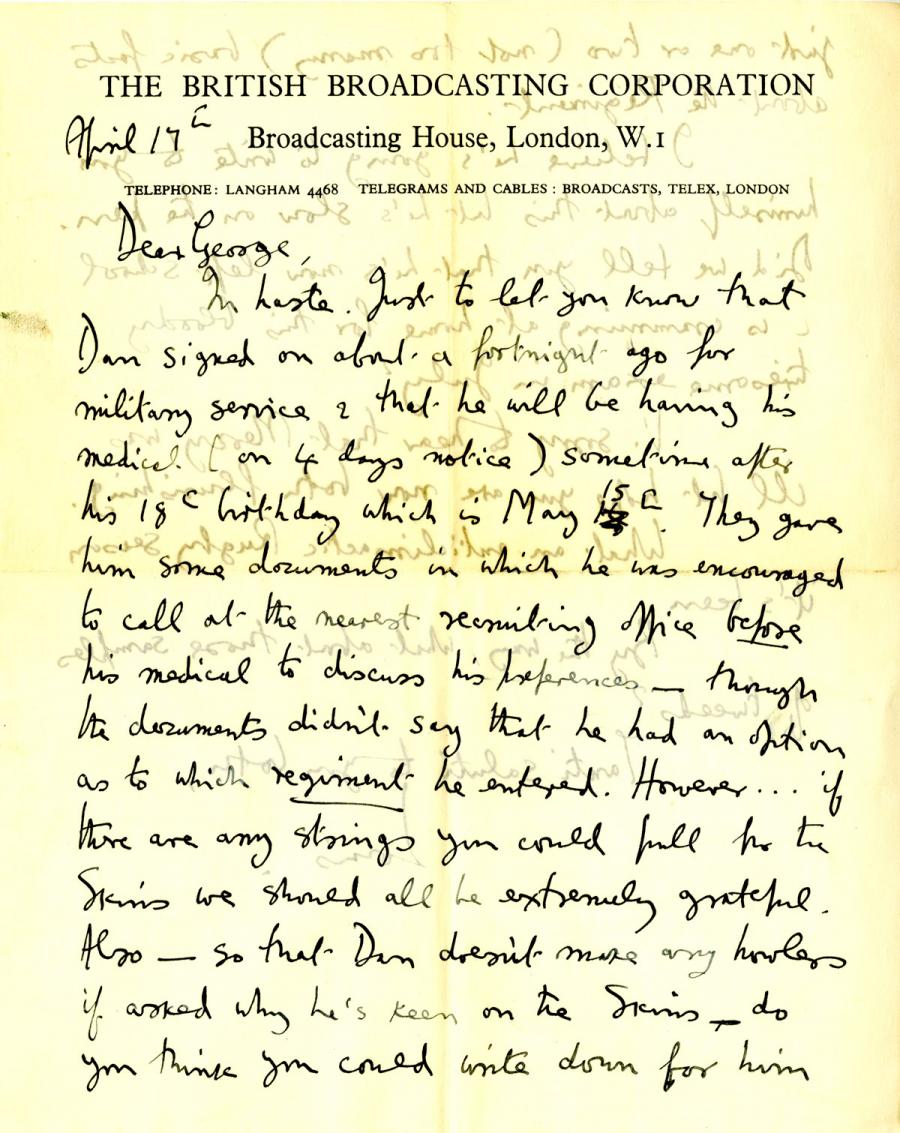 THE BRITISH BROADCASTING CORPORATION
April 17th Broadcasting House, London, W.1
TELEPHONE: LANGHAM 4468 TELEGRAMS AND CABLES: BROADCASTS, TELEX, LONDON
Dear George,
In haste. Just to let you know that
Dan signed on about a fortnight ago for
military service & that he will be having his
medical (on 4 days notice) sometime after
his 18th birthday which is May 15th. They gave
him some documents in which he was encouraged
to call at the nearest recruiting office before
his medical to discuss his preferences — though
the documents didn't say that he had an option
as to which regiment he entered. However... if
there are any strings you could pull for the
Skins we should all be extremely grateful.
Also — so that Dan doesn't make any howlers
if asked why he's keen on the Skins — do
you think you could write down for him